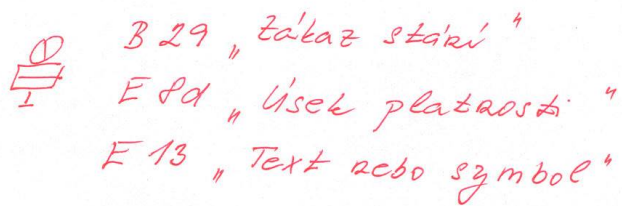 B 29 „Zákaz stání"
E 8d „Úsek platnosti"
E 13 „Text nebo symbol"